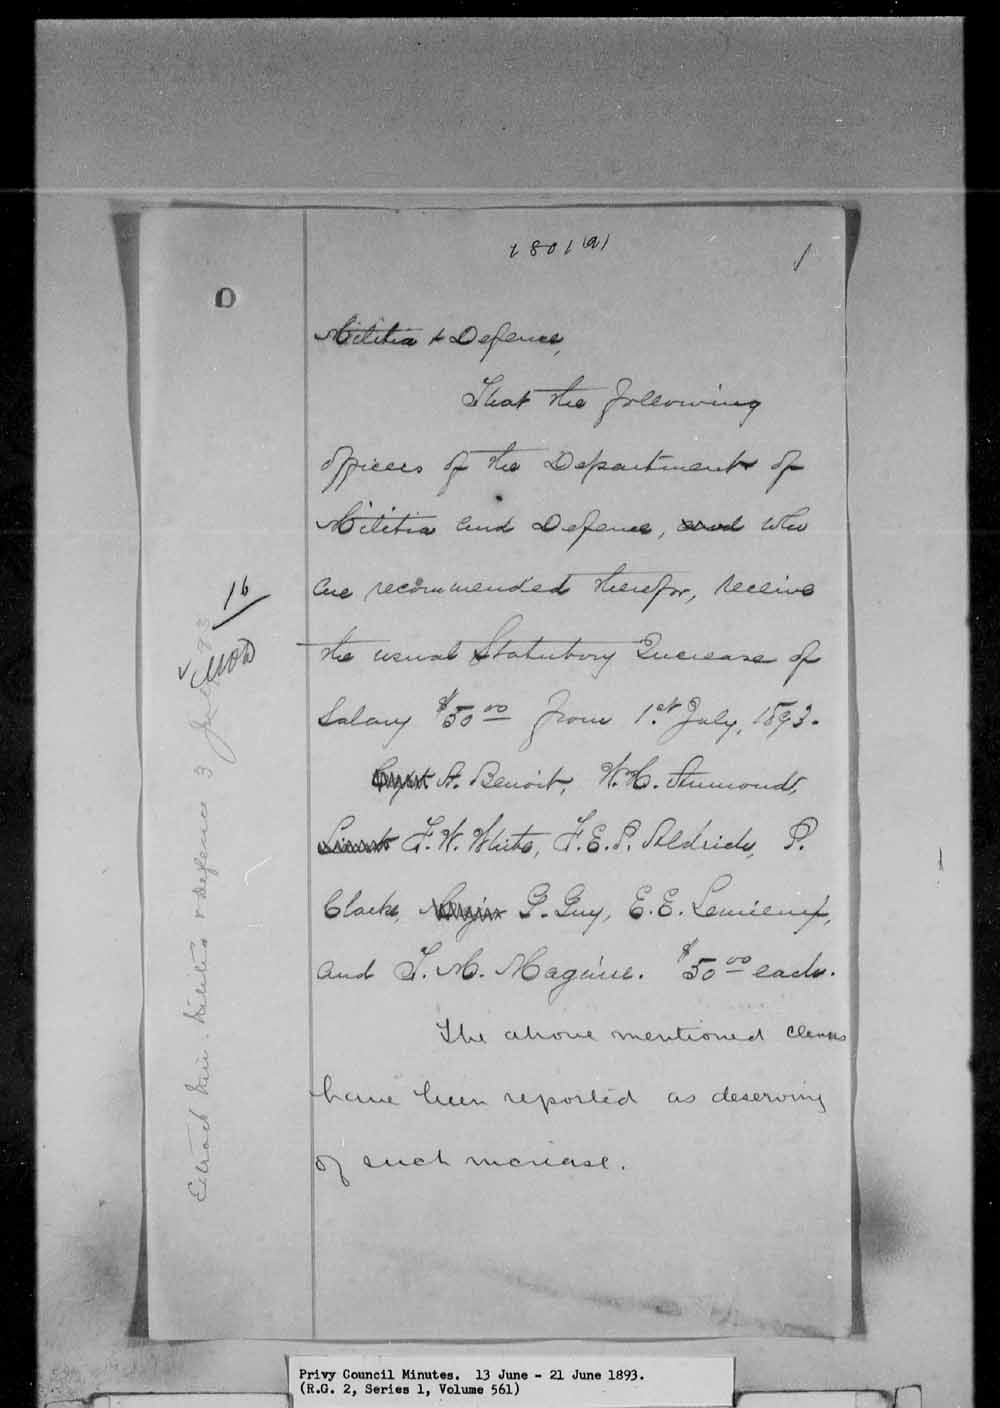 1801 (a)
1
D
Militia & Defence,
That the following
officers of the Department of
Militia and Defence, and who
are recommended therefor, receive
the usual Statutory Increase of
Salary $50 00 from 1st July, 1893.
A. Benoit, W.H. Aumond,
Lieut F.W. White, F.E.P. Aldrich, P.
Clarke, Major G. Guy, E.E. Lemieux,
and T.M. Maguire. $50 00 each.
The above mentioned clerks
have been reported as deserving
of such increase.
16
Extract Min. Militia & Defence 3 July 93
Privy Council Minutes. 13 June - 21 June 1893.
(R.G. 2, Series 1, Volume 561)